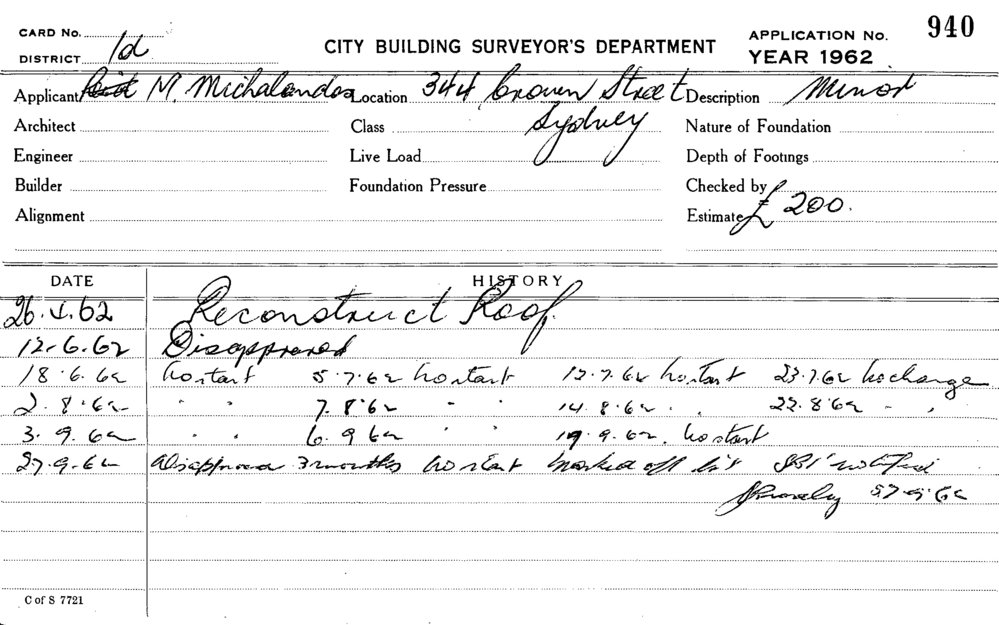 CARD No.
DISTRICT 1d
CITY BUILDING SURVEYOR'S DEPARTMENT
APPLICATION No. 940
YEAR 1962
Applicant M. Michalandos Location 344 Crown Street Sydney Description Minor
Architect Class Nature of Foundation
Engineer Live Load Depth of Footings
Builder Foundation Pressure Checked by
Alignment Estimate £ 200.
DATE HISTORY
26.4.62 Reconstruct Roof.
12.6.62 Disapproved
18.6.62 No start 5.7.62 No start 12.7.62 No start 23.7.62 No change
2.8.62 " " 7.8.62 " " 14.8.62 " " 22.8.62 " "
3.9.62 " " 6.9.62 " " 19.9.62. No start
27.9.62 Disapproved 3 months No start Marked off list notified
27.9.62
C of S 7721